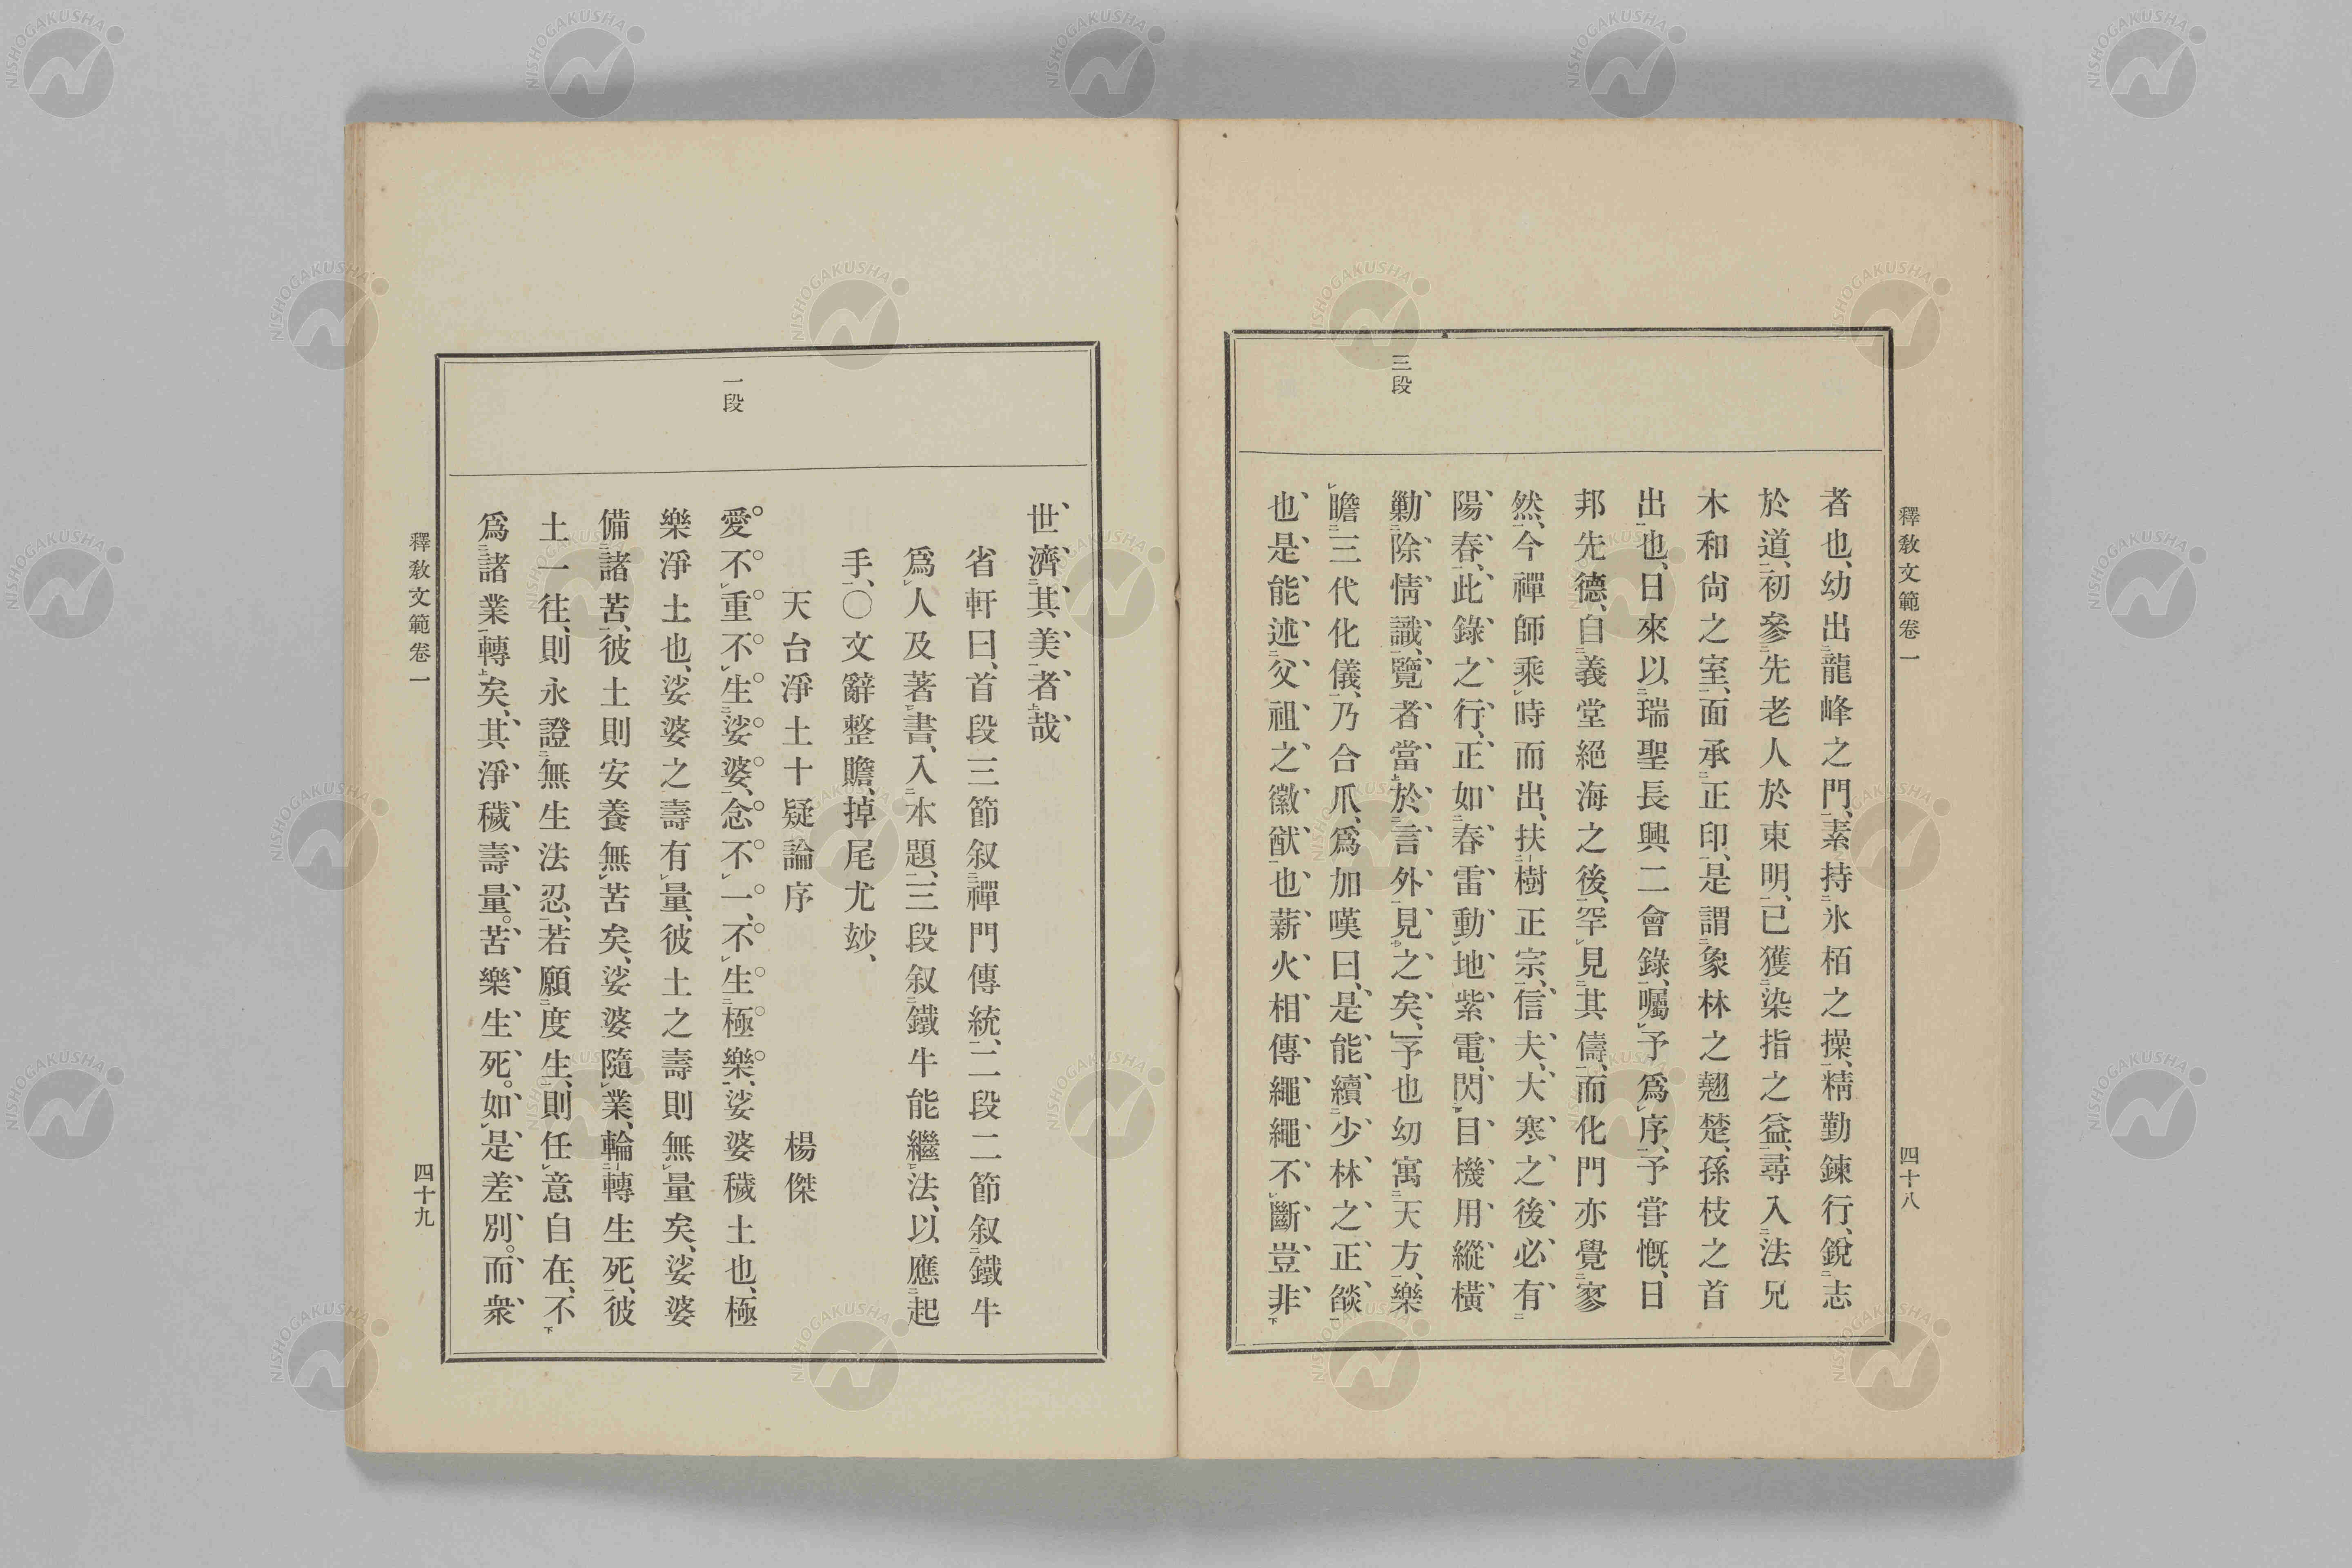 釋教文範卷一
四十八
三段
者也、幼出龍峰之門、素持氷栢之操、精勤鍊行、銳志
於道、初參先老人於東明、已獲染指之益、尋入法兄
木和尙之室、面承正印、是謂象林之翹楚、孫枝之首
出也、日來以瑞聖長興二會錄、囑予爲序、予甞慨、日
邦先德、自義堂絕海之後、罕見其儔、而化門亦覺寥
然、今禪師乘時而出、扶樹正宗、信夫、大寒之後、必有
陽春、此錄之行、正如春雷動地、紫電閃目、機用縱橫
勦除情識、覽者當於言外見之矣、」予也幼寓天方、樂
瞻三代化儀、乃合爪、爲加嘆曰、是能續少林之正燄
也、是能述父祖之徽猷也、薪火相傳、繩繩不斷、豈非
世濟其美者哉、
省軒曰、首段三節叙禪門傳統、二段二節叙鐵牛
爲人及著書、入本題、三段叙鐵牛能繼法、以應起
手、〇文辭整贍、掉尾尤玅、
天台淨土十疑論序 楊傑
一段
愛不重不生娑婆、念不一、不生極樂、娑婆穢土也、極
樂淨土也、娑婆之壽有量、彼土之壽則無量矣、娑婆
備諸苦、彼土則安養無苦矣、娑婆隨業、輪轉生死、彼
土一往、則永證無生法忍、若願度生、則任意自在、不
爲諸業轉矣、其淨穢壽量。苦樂生死。如是差別。而衆
釋教文範卷一
四十九
NISHOGAKUSHA